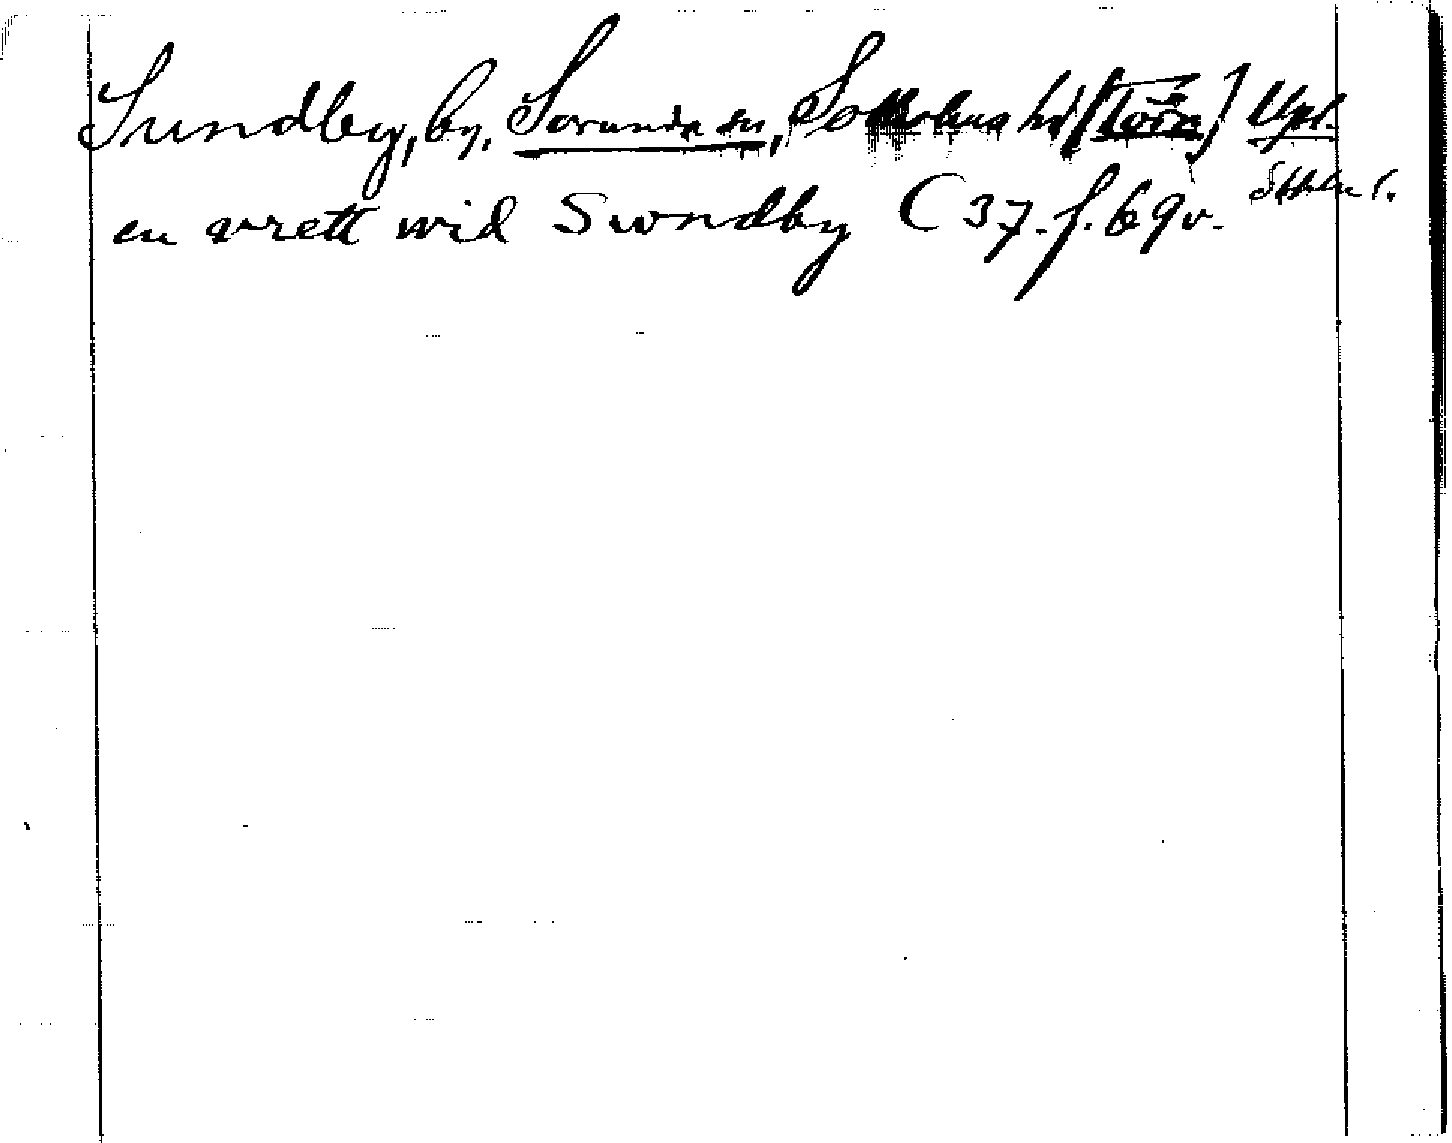 Sundby, by, Sorunda sn, Sotholms hd (Törn) Upl.
Sthlm l.
en wrett wid Swndby C 37. f. 69v.